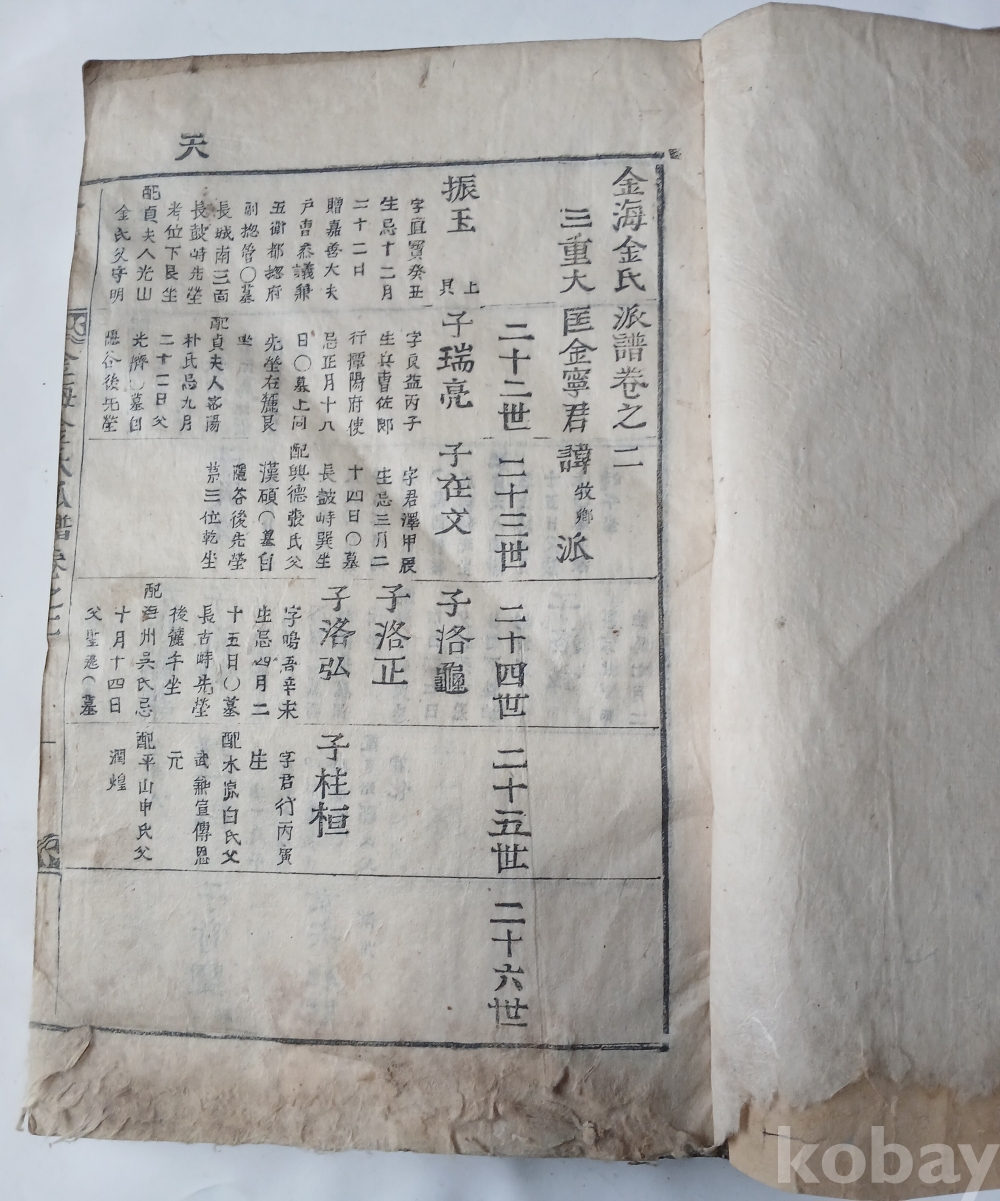 金海金氏派譜卷之二
三重大匡金寧君諱牧卿派
二十二世
二十三世
二十四世
二十五世
二十六世
天
振玉
上
見
字直寶癸丑
生忌十二月
二十二日
贈嘉善大夫
戶曹參議兼
五衛都摠府
副摠管〇墓
長城南三面
長鼓峙先塋
考位下艮坐
配貞夫人光山
金氏父守明
子瑞亮
字良益丙子
生兵曹佐郞
行潭陽府使
忌正月十八
日〇墓上同
先塋右麓艮
坐
配貞夫人密陽
朴氏忌九月
二十二日父
光濟〇墓自
隱谷後先塋
子在文
字君澤甲辰
生忌三月二
十四日〇墓
長鼓峙巽坐
配興德張氏父
漢碩〇墓自
隱谷後先塋
第三位乾坐
子洛龜
子洛正
子洛弘
字鳴吾辛未
生忌四月二
十五日〇墓
長古峙先塋
後麓午坐
配海州吳氏忌
十月十四日
父聖 〇墓
子柱桓
字君行丙寅
生
配水原白氏父
武兼宣傳恩
元
配平山申氏父
潤煌
金海金氏派譜卷之二
一
kobay